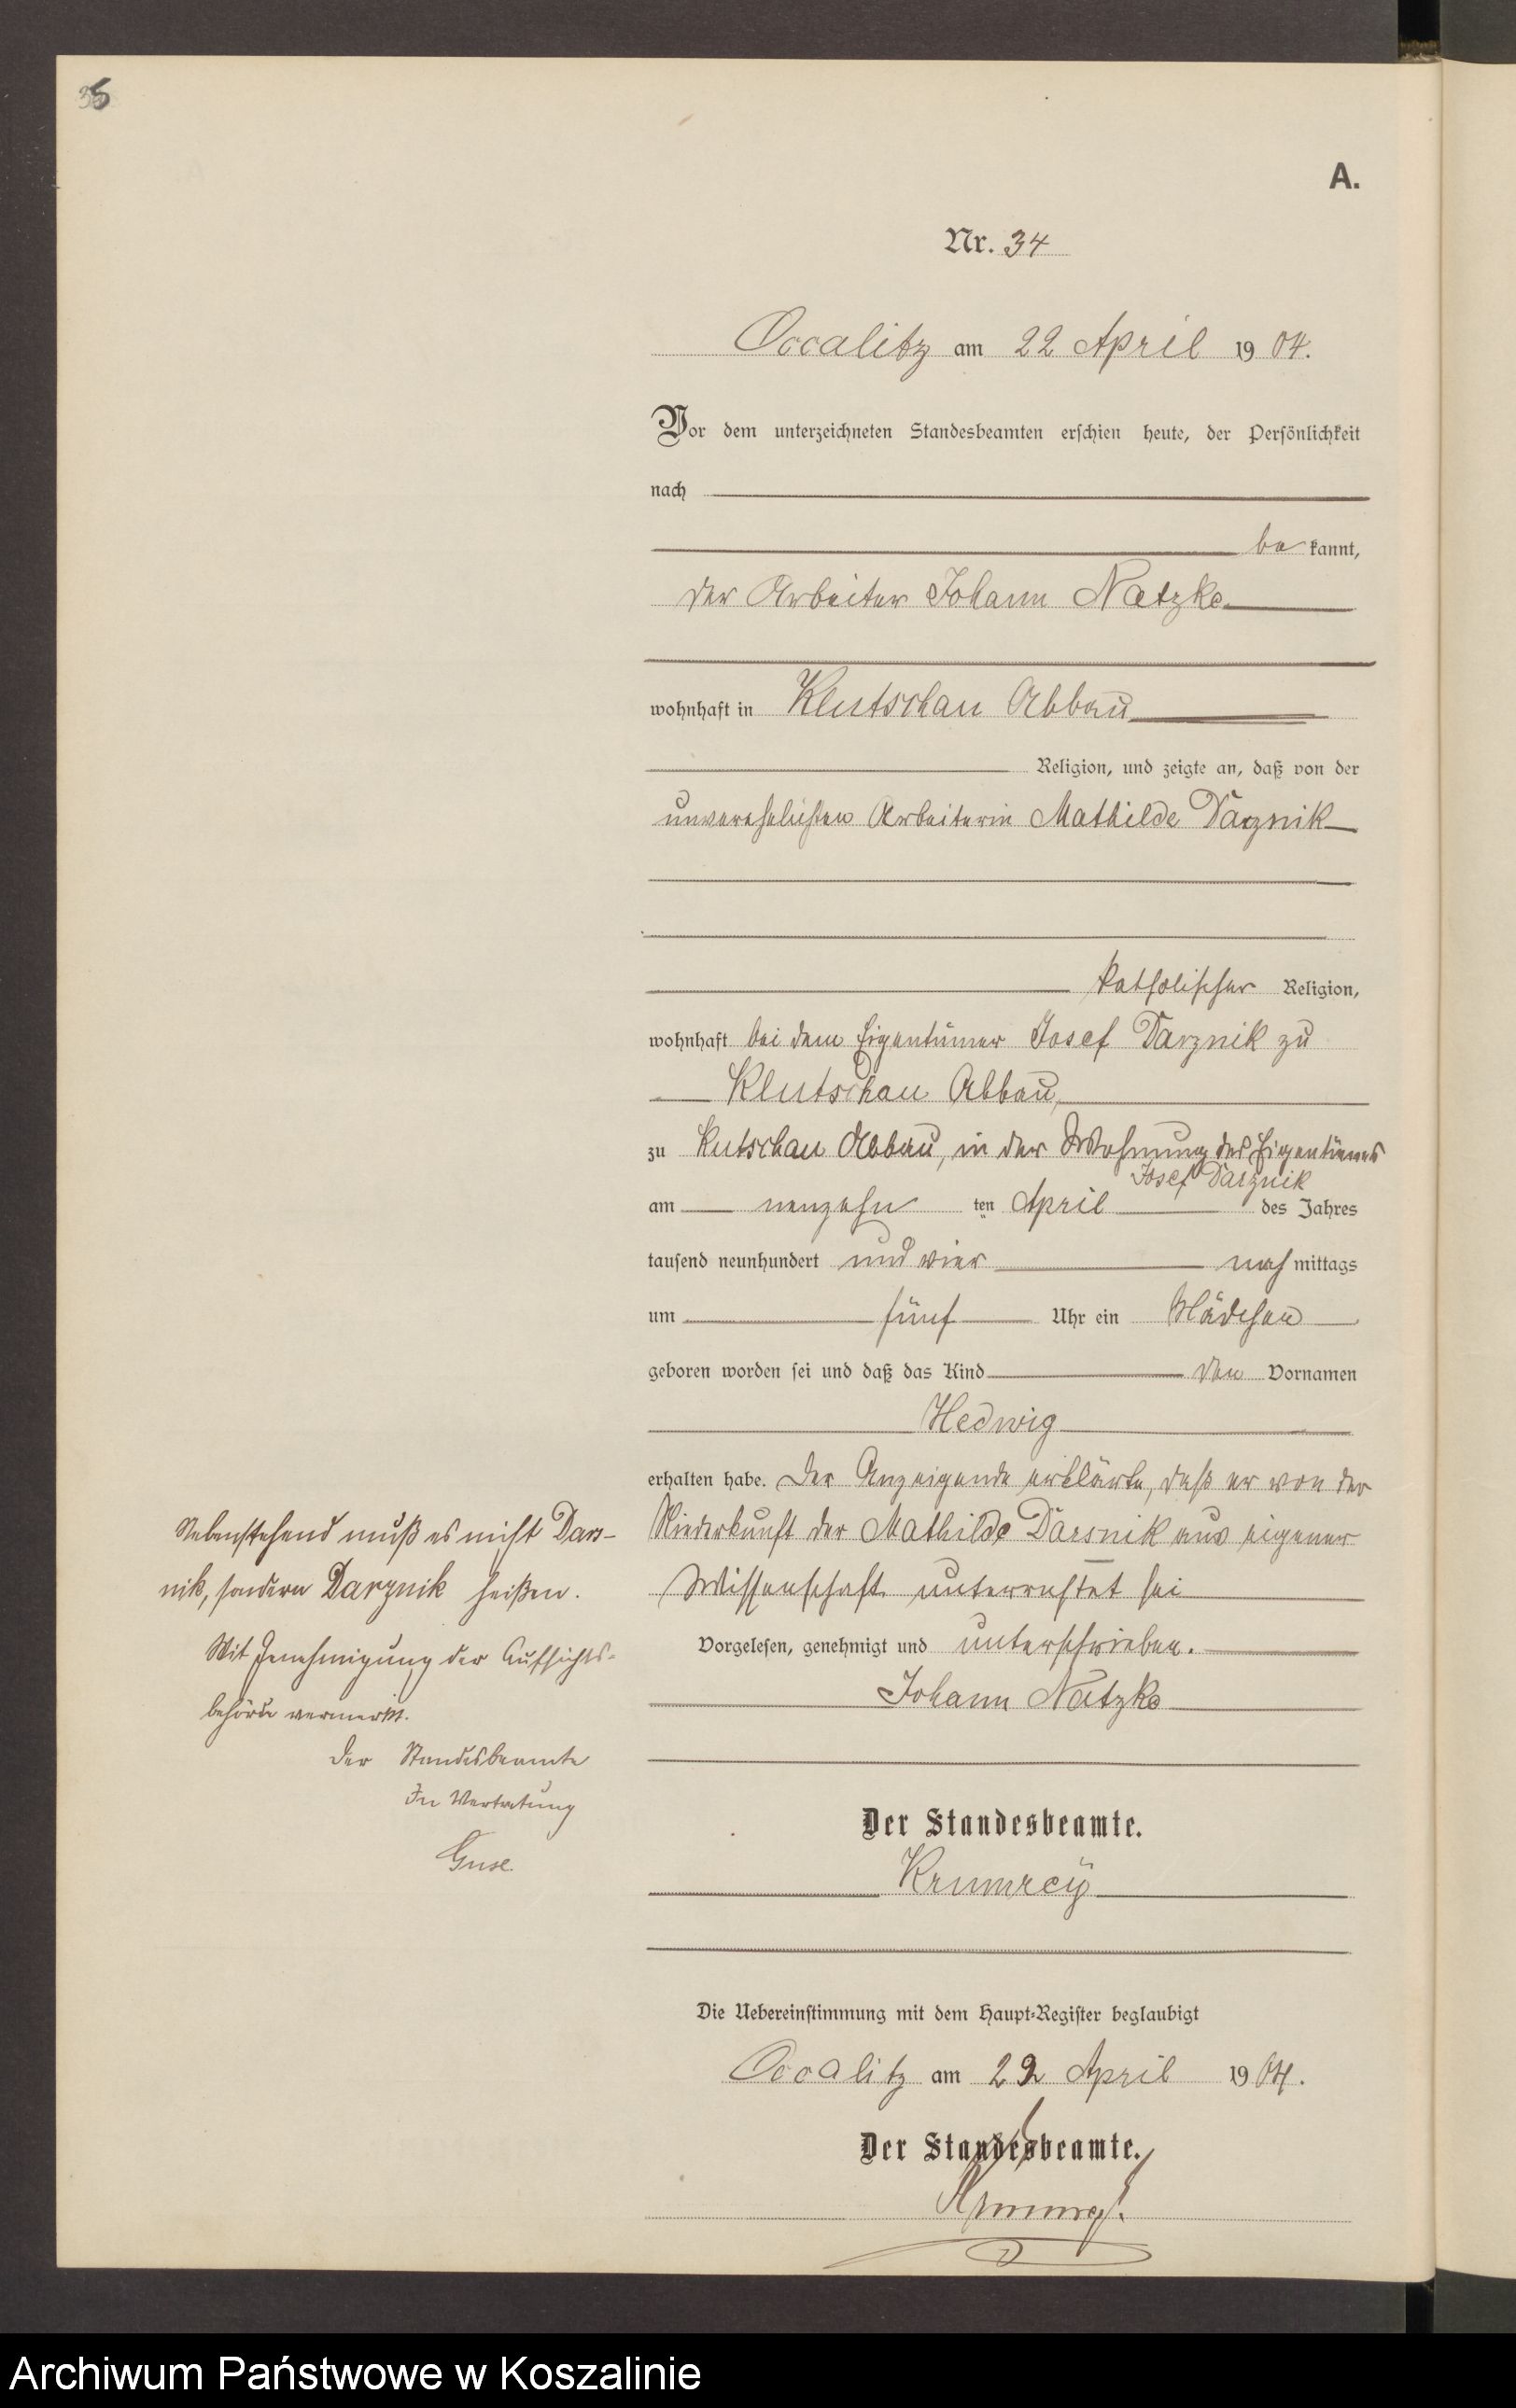 35
A.
Nr. 34
Occalitz am 22 April 1904.
Vor dem unterzeichneten Standesbeamten erschien heute, der Persönlichkeit
nach
be kannt,
der Arbeiter Johann Natzke
wohnhaft in Klutschau Abbau
Religion, und zeigte an, daß von der
unverehelichten Arbeiterin Mathilde Darznik
katholischer Religion,
wohnhaft bei dem Eigentümer Josef Darznik zu
Klutschau Abbau,
zu Kutschau Abbau, in der Wohnung des Eigentümers
Josef Darznik
am neuzehn ten April des Jahres
tausend neunhundert und vier nach mittags
um fünf Uhr ein Mädchen
geboren worden sei und daß das Kind den Vornamen
Hedwig
erhalten habe. Der Anzeigende erklärte, daß er von der
Niederkunft der Mathilde Darsnik aus eigener
Wissenschaft unterrichtet sei
Vorgelesen, genehmigt und unterschrieben.
Johann Natzke
Nebenstehend muß es nicht Dars-
nik, sondern Darznik heißen.
Mit Genehmigung der Aufsichts-
behörde vermerkt.
Der Standesbeamte
In Vertretung
Guse.
Der Standesbeamte.
Krumrey
Die Uebereinstimmung mit dem Haupt-Register beglaubigt
Occalitz am 22 April 1904.
Der Standesbeamte.
Krumrey.
Archiwum Państwowe w Koszalinie